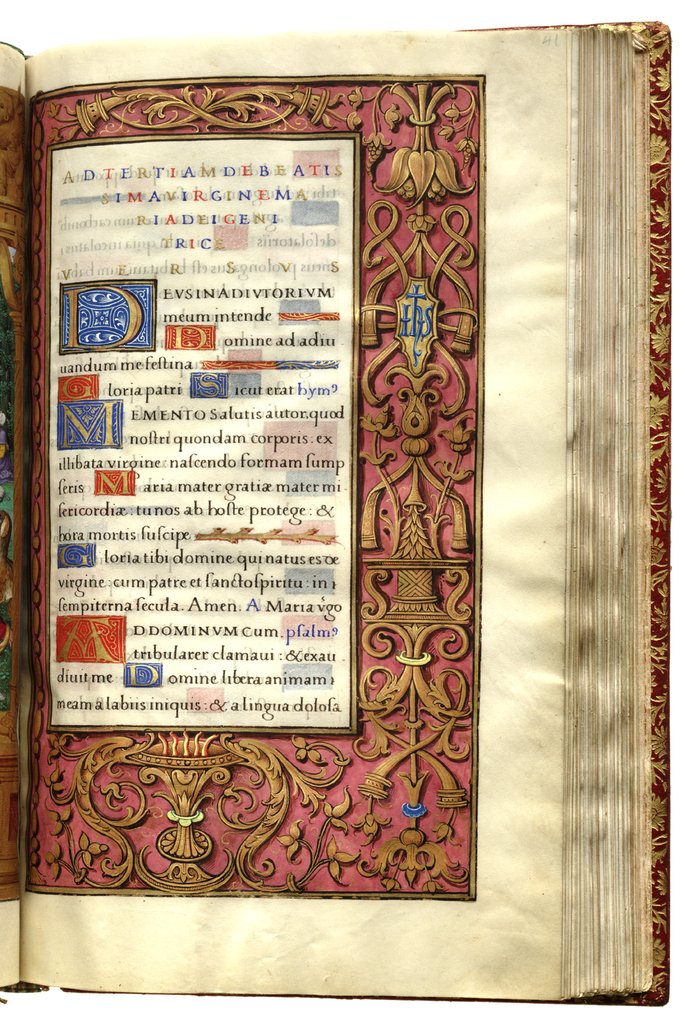 41
AD TERTIAM DE BEATIS
SIMA VIRGINE MA
RIA DEI GENI
TRICE
VERSUS
DEUS IN ADIUTORIUM
meum intende
Domine ad adiu
uandum me festina
Gloria patri Sicut erat hymꝰ
MEMENTO Salutis autor, quod
nostri quondam corporis: ex
illibata virgine nascendo formam sump
seris Maria mater gratiæ mater mi
sericordiæ: tu nos ab hoste protege: &
hora mortis suscipe
Gloria tibi domine qui natus es de
virgine: cum patre et sancto spiritu: in
sempiterna secula. Amen. A Maria v̾go
AD DOMINUM cum. psalmꝰ
tribularer clamaui: & exau
diuit me Domine libera animam
meam a labiis iniquis: & a lingua dolosa
IHS